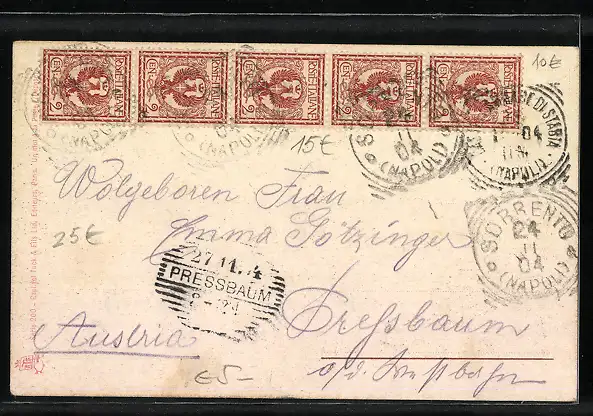 POSTE ITALIANE POSTE ITALIANE POSTE ITALIANE POSTE ITALIANE POSTE ITALIANE
CENT. 2 CENT. 2 CENT. 2 CENT. 2 CENT. 2
10€
15€
25€
(NAPOLI)
(NAPOLI)
04
(NAPOLI)
DI STABIA
04
(NAPOLI)
SORRENTO
24
11
04
(NAPOLI)
Wolgeboren Frau
Emma Götzinger
27.11.4
PRESSBAUM
Pressbaum
Austria
a/d. Westbahn
€5-